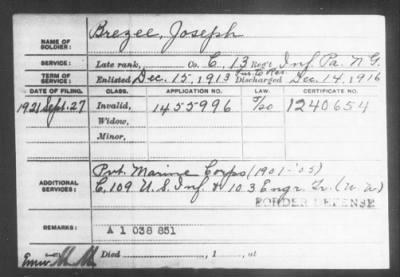 NAME OF SOLDIER: Brezee, Joseph
SERVICE: Late rank, Co. E, 13 Reg't Inf. Pa. N.G.
TERM OF SERVICE: Enlisted Dec. 15, 1913 Fur. to Res. Discharged Dec. 14, 1916
DATE OF FILING. CLASS. APPLICATION NO. LAW. CERTIFICATE NO.
1921 Sept. 27 Invalid, 1455996 1240654
Widow,
Minor,
Pvt. Marine Corps (1901-'05)
ADDITIONAL SERVICES: E, 109 U.S. Inf. & 103 Engr. Tr. (W.W.)
BORDER DEFENSE
REMARKS: A 1 038 851
Died , 1 , at